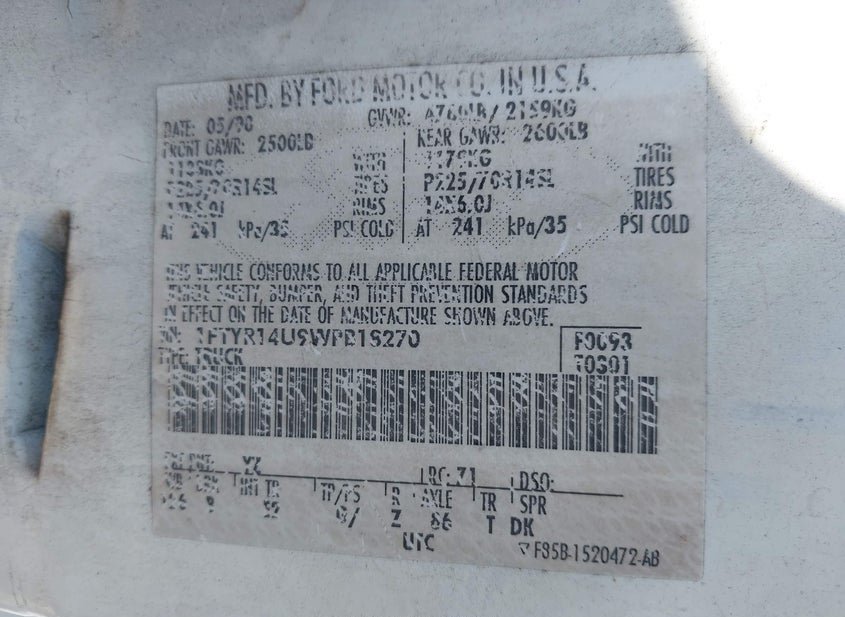 MFD. BY FORD MOTOR CO. IN U.S.A.
DATE: 05/98 GVWR: 4760LB/ 2159KG
FRONT GAWR: 2500LB REAR GAWR: 2600LB
WITH 1179KG WITH
P225/70R14SL TIRES P225/70R14SL TIRES
14X6.0J RIMS 14X6.0J RIMS
AT 241 kPa/35 PSI COLD AT 241 kPa/35 PSI COLD
THIS VEHICLE CONFORMS TO ALL APPLICABLE FEDERAL MOTOR
VEHICLE SAFETY, BUMPER, AND THEFT PREVENTION STANDARDS
IN EFFECT ON THE DATE OF MANUFACTURE SHOWN ABOVE.
VIN: F0093
TYPE: TRUCK
EXT PNT: YZ RC: 71 DSO:
WB BRK INT TR TP/PS R AXLE TR SPR
Z 86 T DK
UTC ▽ F85B-1520472-AB